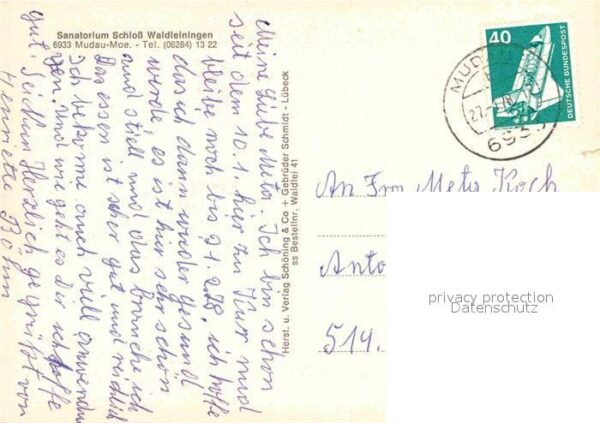 Sanatorium Schloß Waldleiningen
6933 Mudau-Moe. - Tel. (06284) 13 22
Meine liebe Meta. Ich bin schon
seit dem 10.1. hier zur Kur und
bleibe noch bis 21.2.78. ich hoffe
das ich dann wieder gesund
werde, es ist hier sehr schön
und still und das brauche ich
Das essen ist sher gut und reichlich
ich bekomme auch viell anwendun
gen. Und wie geht es Dir ich hoffe
gut. Sei nun Herzlich gegrüßt von
Henriette Böhm
Herst. u. Verlag Schöning & Co + Gebrüder Schmidt - Lübeck
ss Bestellnr. Waldlei 41
40
DEUTSCHE BUNDESPOST
MUDAU
27.
693
An Frau Meta Koch
Anto
514.
privacy protection
Datenschutz